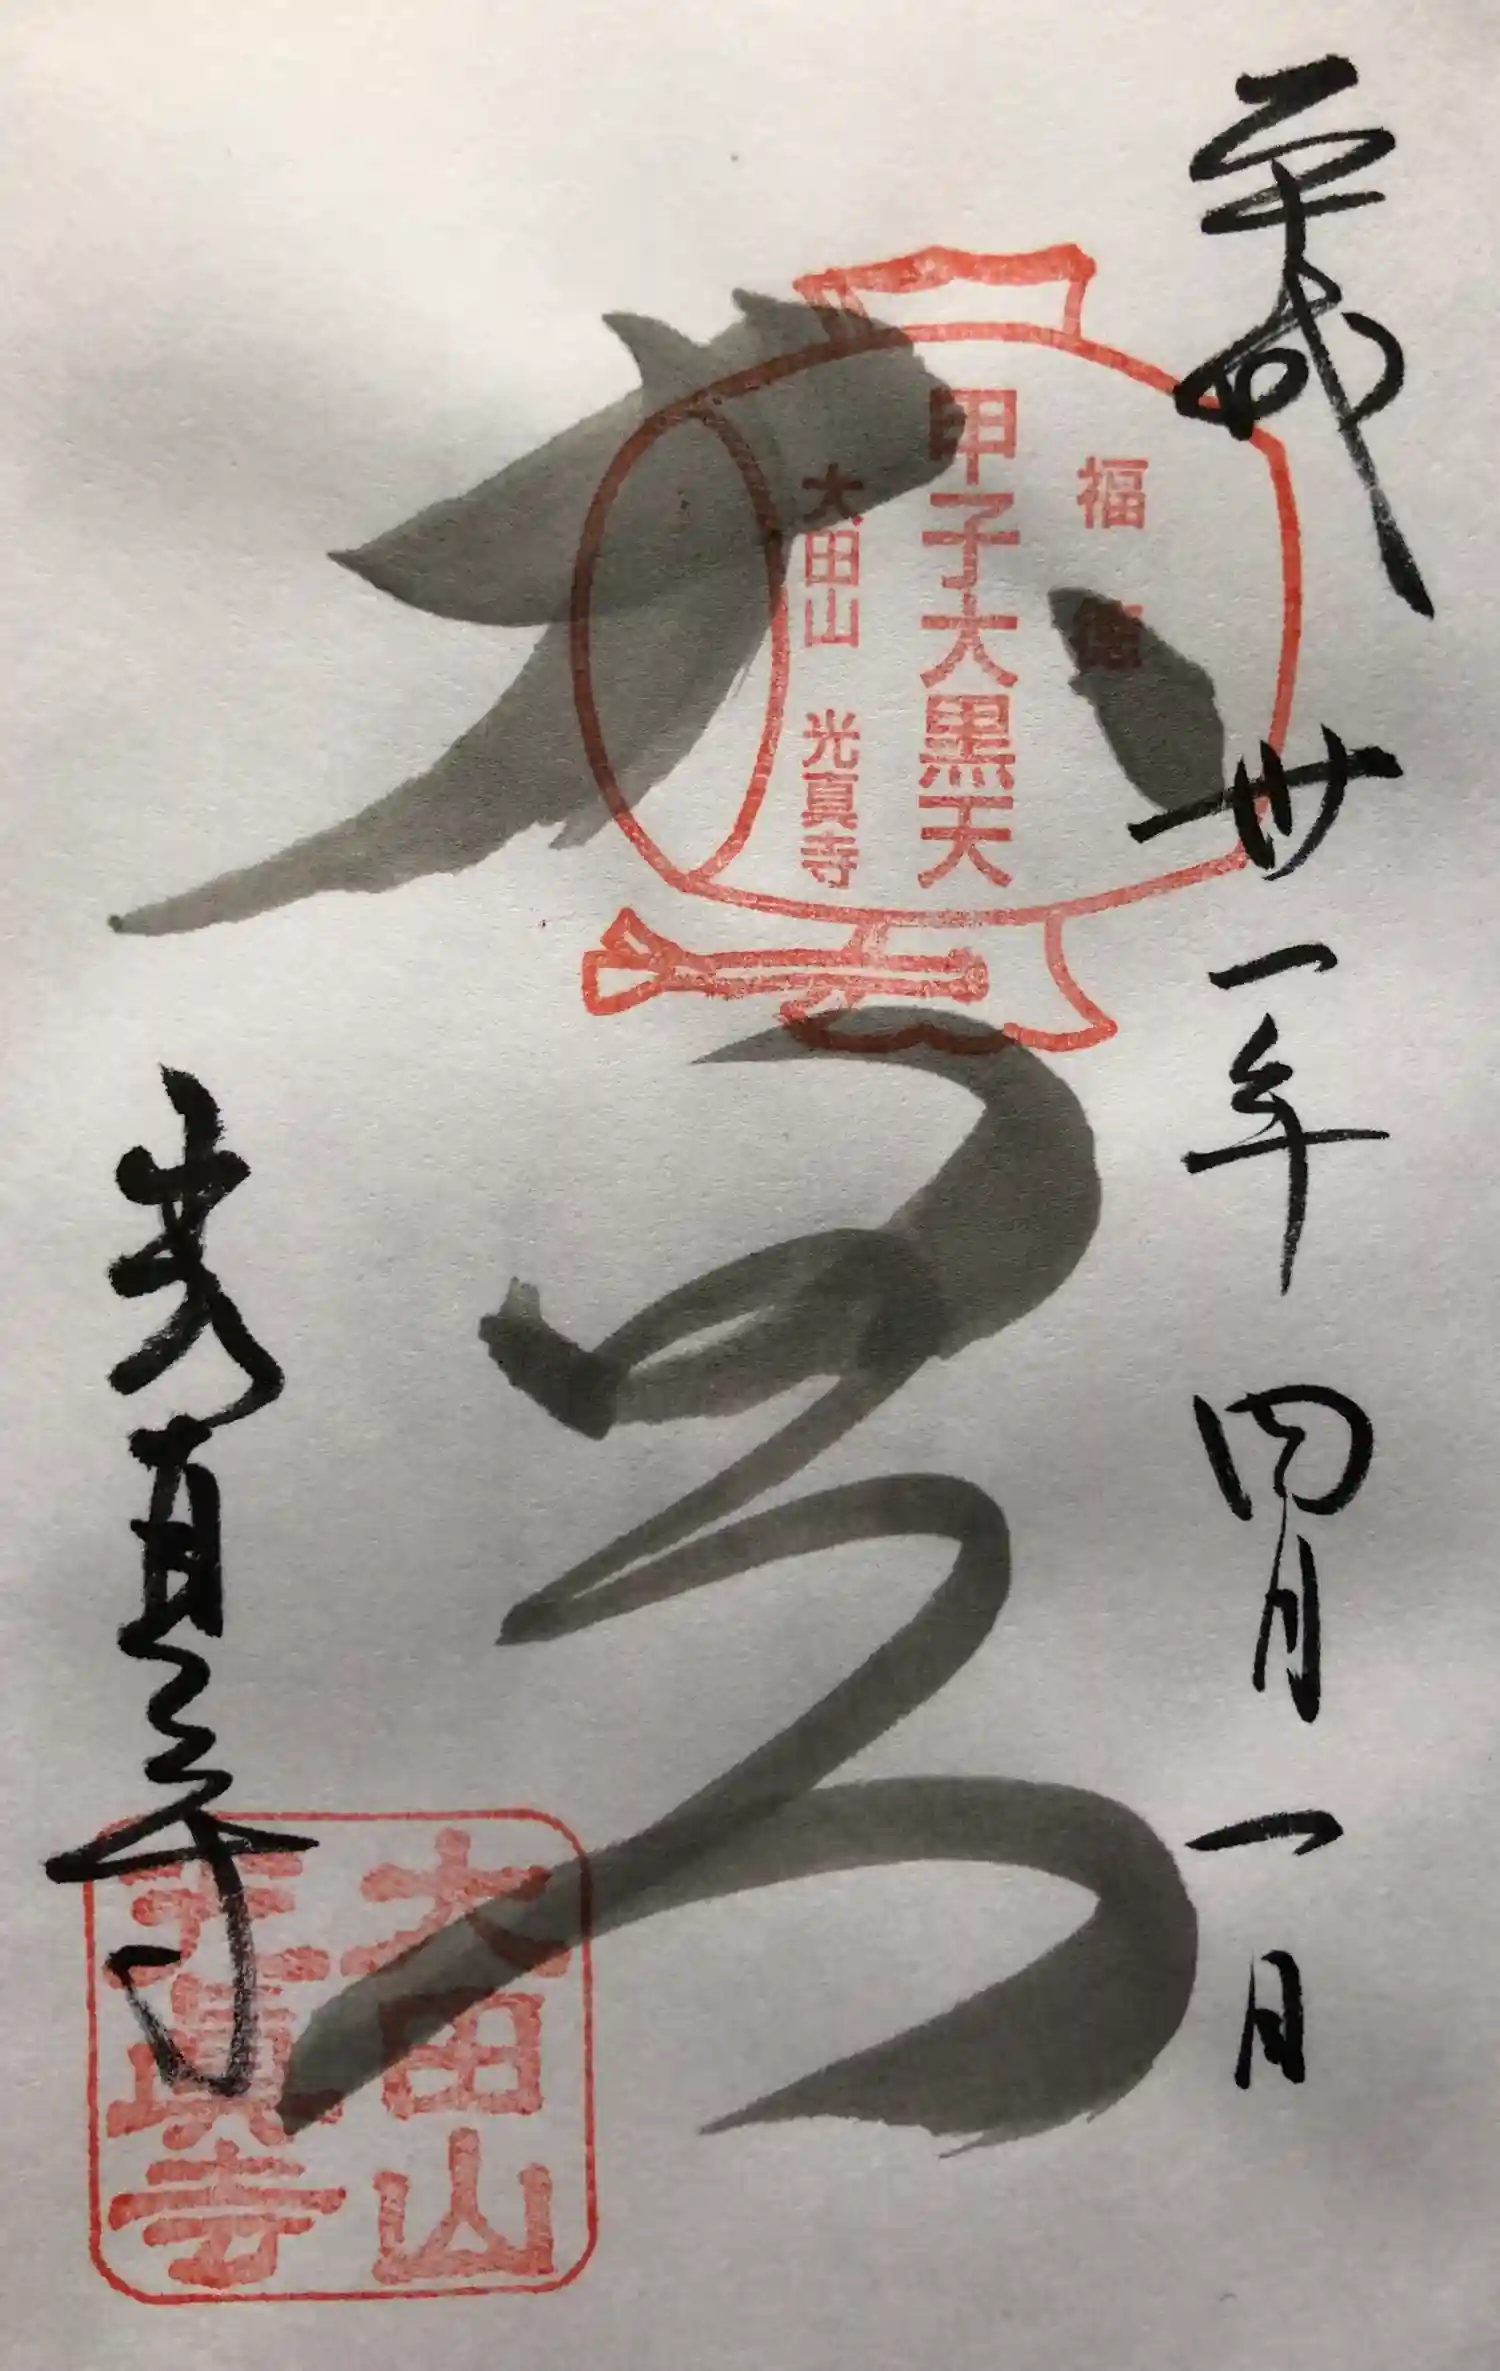 平成
卅一年
四月
一日
福德
甲子大黒天
大田山 光真寺
光真寺
大田山
光真寺